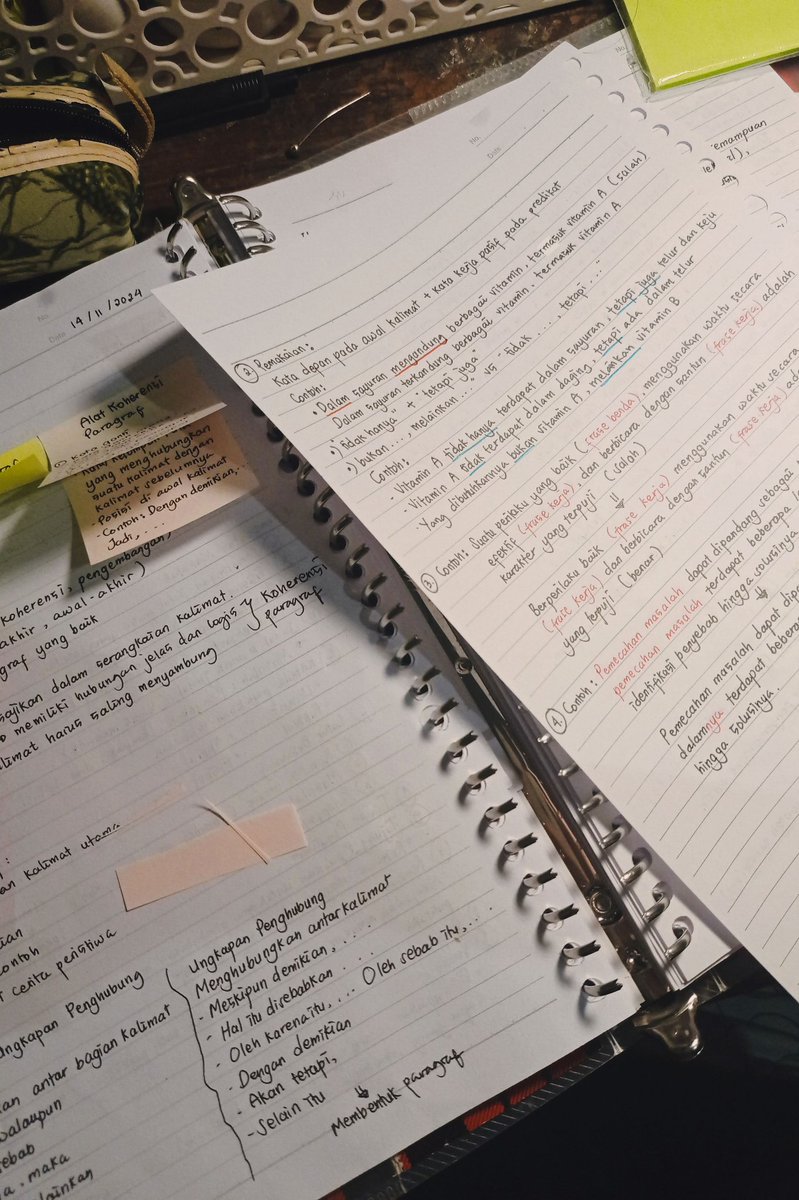 No.
Date 14/11/2024
Alat Koherensi
Paragraf
yang menghubungkan
suatu kalimat dengan
kalimat sebelumnya
- Posisi di awal kalimat
- Contoh: Dengan demikian,
Jadi, ...
koherensi, pengembangan,
akhir, awal-akhir)
graf yang baik
sajikan dalam serangkaian kalimat.
memiliki hubungan jelas dan logis } Koherensi
paragraf
alimat harus saling menyambung
an kalimat utama
contoh
cerita peristiwa
ngkapan Penghubung
an antar bagian kalimat
walaupun
ebab
a, maka
lainkan
Ungkapan Penghubung
Menghubungkan antar kalimat
- Meskipun demikian, ...
- Hal itu disebabkan ...
- Oleh karena itu, ... Oleh sebab itu, ...
- Dengan demikian
- Akan tetapi,
- Selain itu
↓
Membentuk paragraf
No.
Date
② Pemakaian:
Kata depan pada awal kalimat + kata kerja pasif pada predikat
Contoh:
• Dalam sayuran mengandung berbagai vitamin, termasuk vitamin A (salah)
Dalam sayuran terkandung berbagai vitamin, termasuk vitamin A
•) "tidak hanya" + "tetapi juga"
•) bukan ..., melainkan ..." vs "tidak ..., tetapi ..."
Contoh:
Vitamin A tidak hanya terdapat dalam sayuran, tetapi juga telur dan keju
- Vitamin A tidak terdapat dalam daging, tetapi ada dalam telur
- Yang dibutuhkannya bukan vitamin A, melainkan vitamin B
③ Contoh: Suatu perilaku yang baik (frase benda), menggunakan waktu secara
efektif (frase kerja), dan berbicara dengan santun (frase kerja) adalah
karakter yang terpuji (salah)
↓
Berperilaku baik (frase kerja) menggunakan waktu secara
(frase kerja), dan berbicara dengan santun (frase kerja) ada
yang terpuji (benar)
④ Contoh: Pemecahan masalah dapat dipandang sebagai
pemecahan masalah terdapat beberapa
identifikasi penyebab hingga solusinya
↓
Pemecahan masalah dapat dip
dalamnya terdapat bebera
hingga solusinya.
emampuan